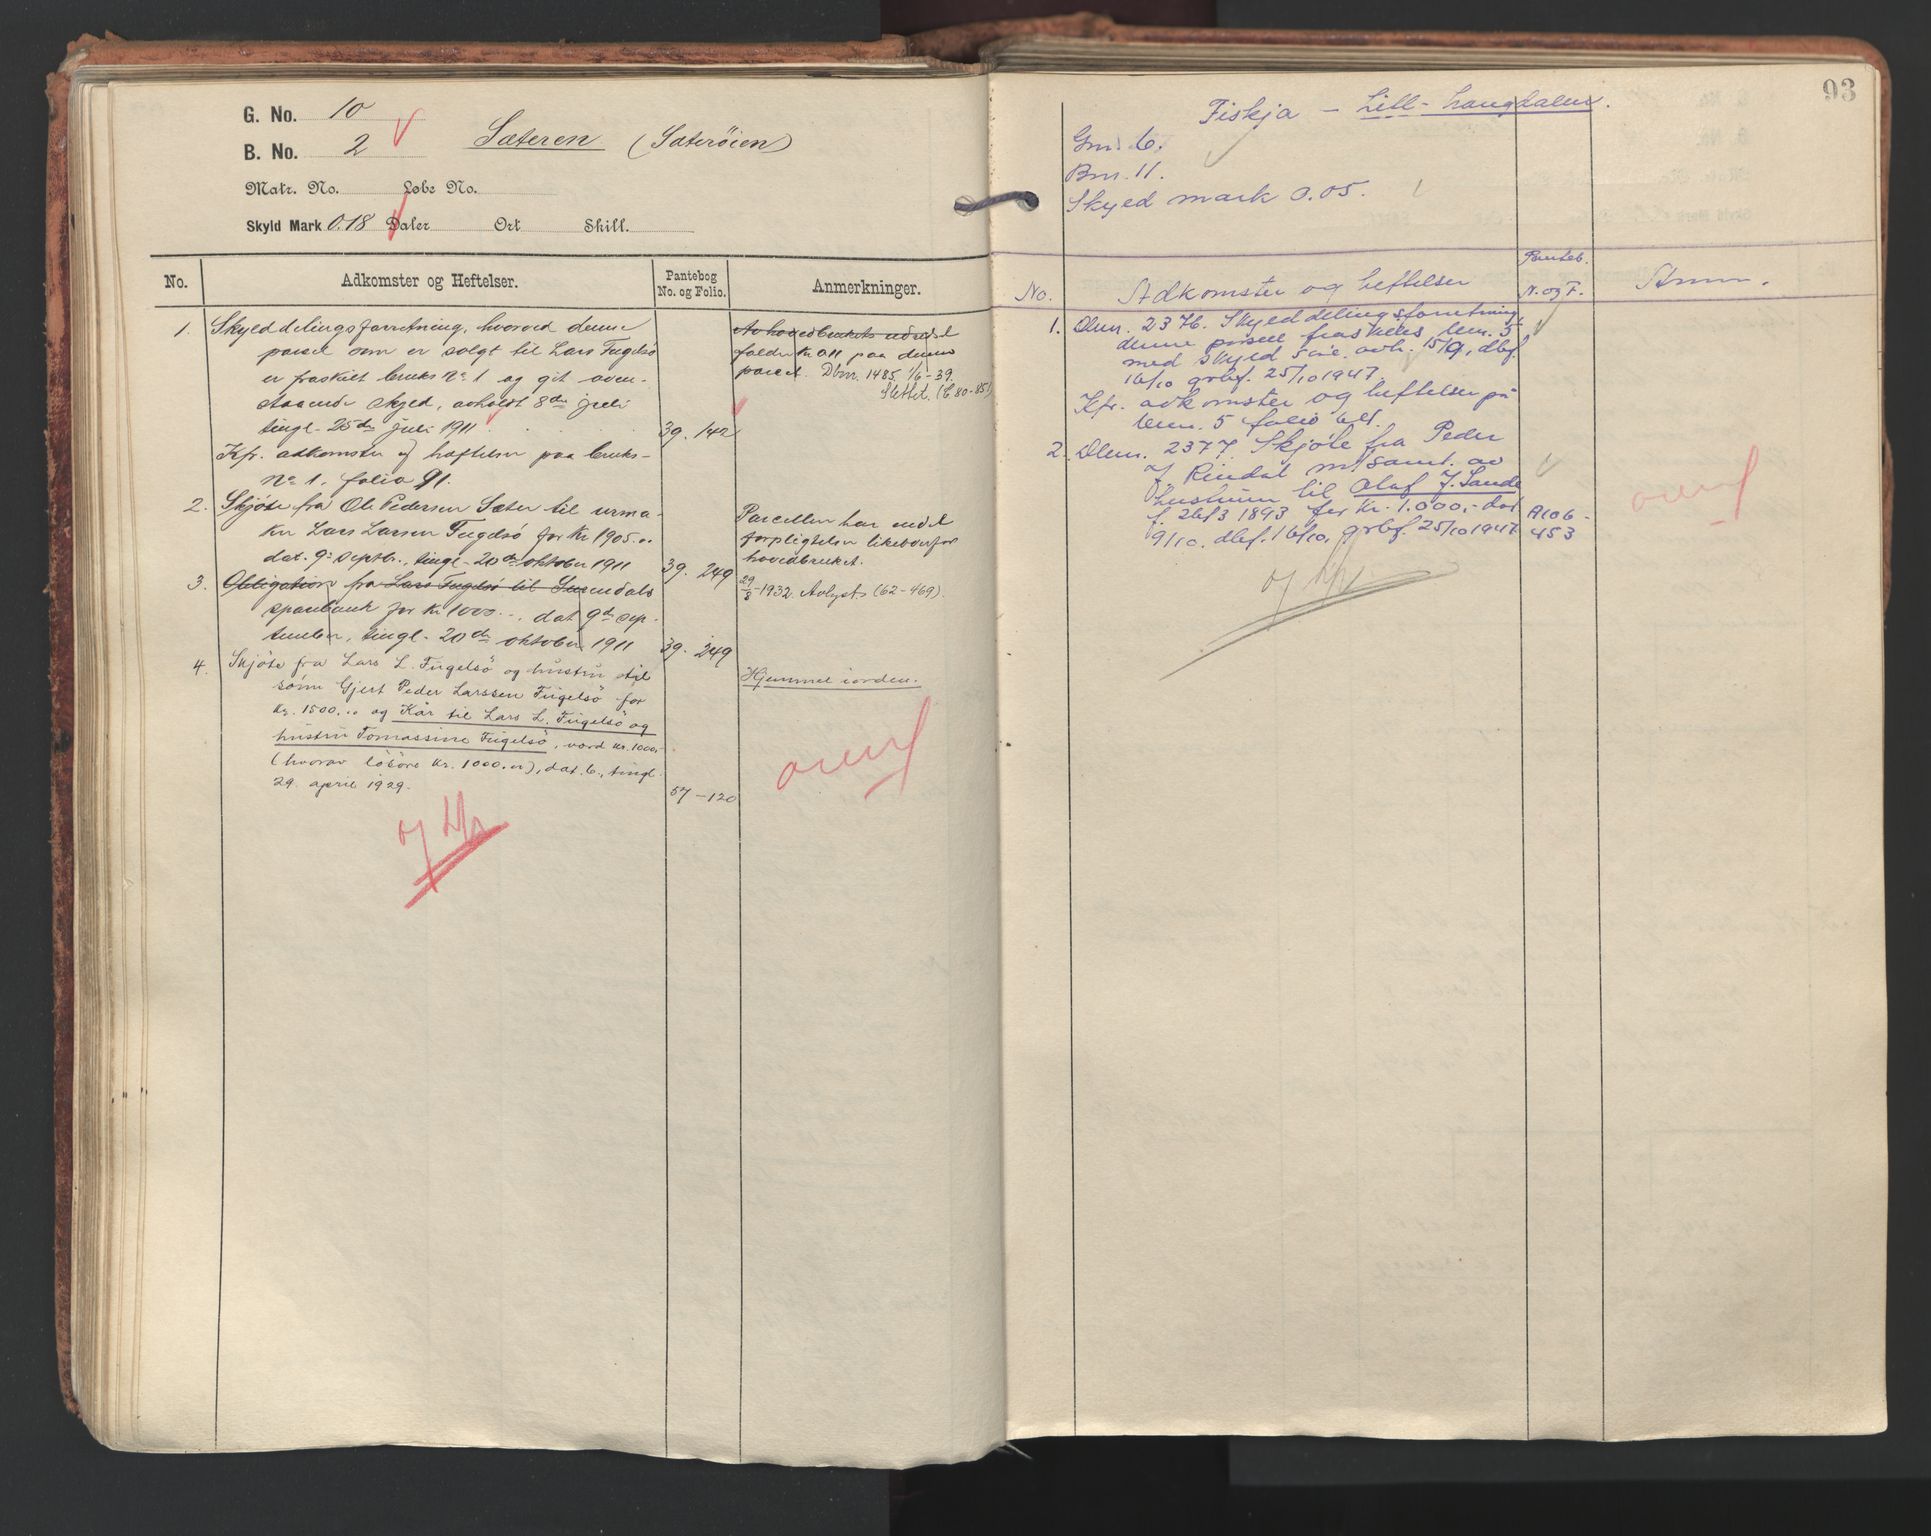 G. No. 10
B. No. 2
Sæteren (Sæterøien)
Matr. No. Løbe No.
Skyld Mark 0.18 Daler Ort Skill.
No. Adkomster og Heftelser. Pantebog No. og Folio. Anmerkninger.
1. Skylddelingsforretning, hvorved denne
parsel som er solgt til Lars Fugelsø
er fraskilt bruks No 1 og git oven-
staaende skyld, avholdt 8de juli
tingl. 25de juli 1911. 39. 142
Kfr. adkomster og heftelser paa bruks-
No 1, folio 91.
Av hovedbrukets utredsel
falder Kr. 0.11 paa denne
parcel. Dbnr. 1485 1/6-39.
Slettet. (C 80-85)
2. Skjøte fra Ole Pedersen Sæter til urma-
ker Lars Larsen Fugelsø for Kr 1905.00
dat. 9. septbr., tingl. 20de oktober 1911 39. 249
Parcellen har endel
forpligtelser likeoverfor
hovedbruket.
3. Obligation fra Lars Fugelsø til Surendals
sparebank for Kr 1000.-, dat 9de sep-
tember, tingl. 20de oktober 1911 39. 249
29/8-1932. Avlyst. (62-469).
4. Skjöte fra Lars L. Fugelsö og hustru til
sönn Gjert Peder Larssen Fugelsö for
Kr. 1500.00 og Kår til Lars L. Fugelsö og
hustru Tomassine Fugelsö, værd kr. 1000,-
(hvorav lösöre Kr. 1000.00), dat. 6., tingl.
29. april 1929. 57-120
Hjemmel iorden.
overf
93
Fiskja - Litl-Langdalen.
Gnr. 6.
Bnr. 11.
Skyld mark 0.05.
No. Adkomster og heftelser Panteb. N. og F. Anm.
1. Dbnr. 2376. Skylddelingsforretning.
denne parsell fraskilles bnr. 5
med skyld 5 øre. avh. 15/9, dbf.
16/10 grbf. 25/10 1947.
Kfr. adkomster og heftelser på
bnr. 5 folio
2. Dbnr. 2377. Skjøte fra Peder
J. Rindal m/samt. av
hustrum til Olaf J. Sande
f. 1893 for Kr. 1.000,- dat A106-
9/10, dbf. 16/10, grbf. 25/10 1947 453
overf